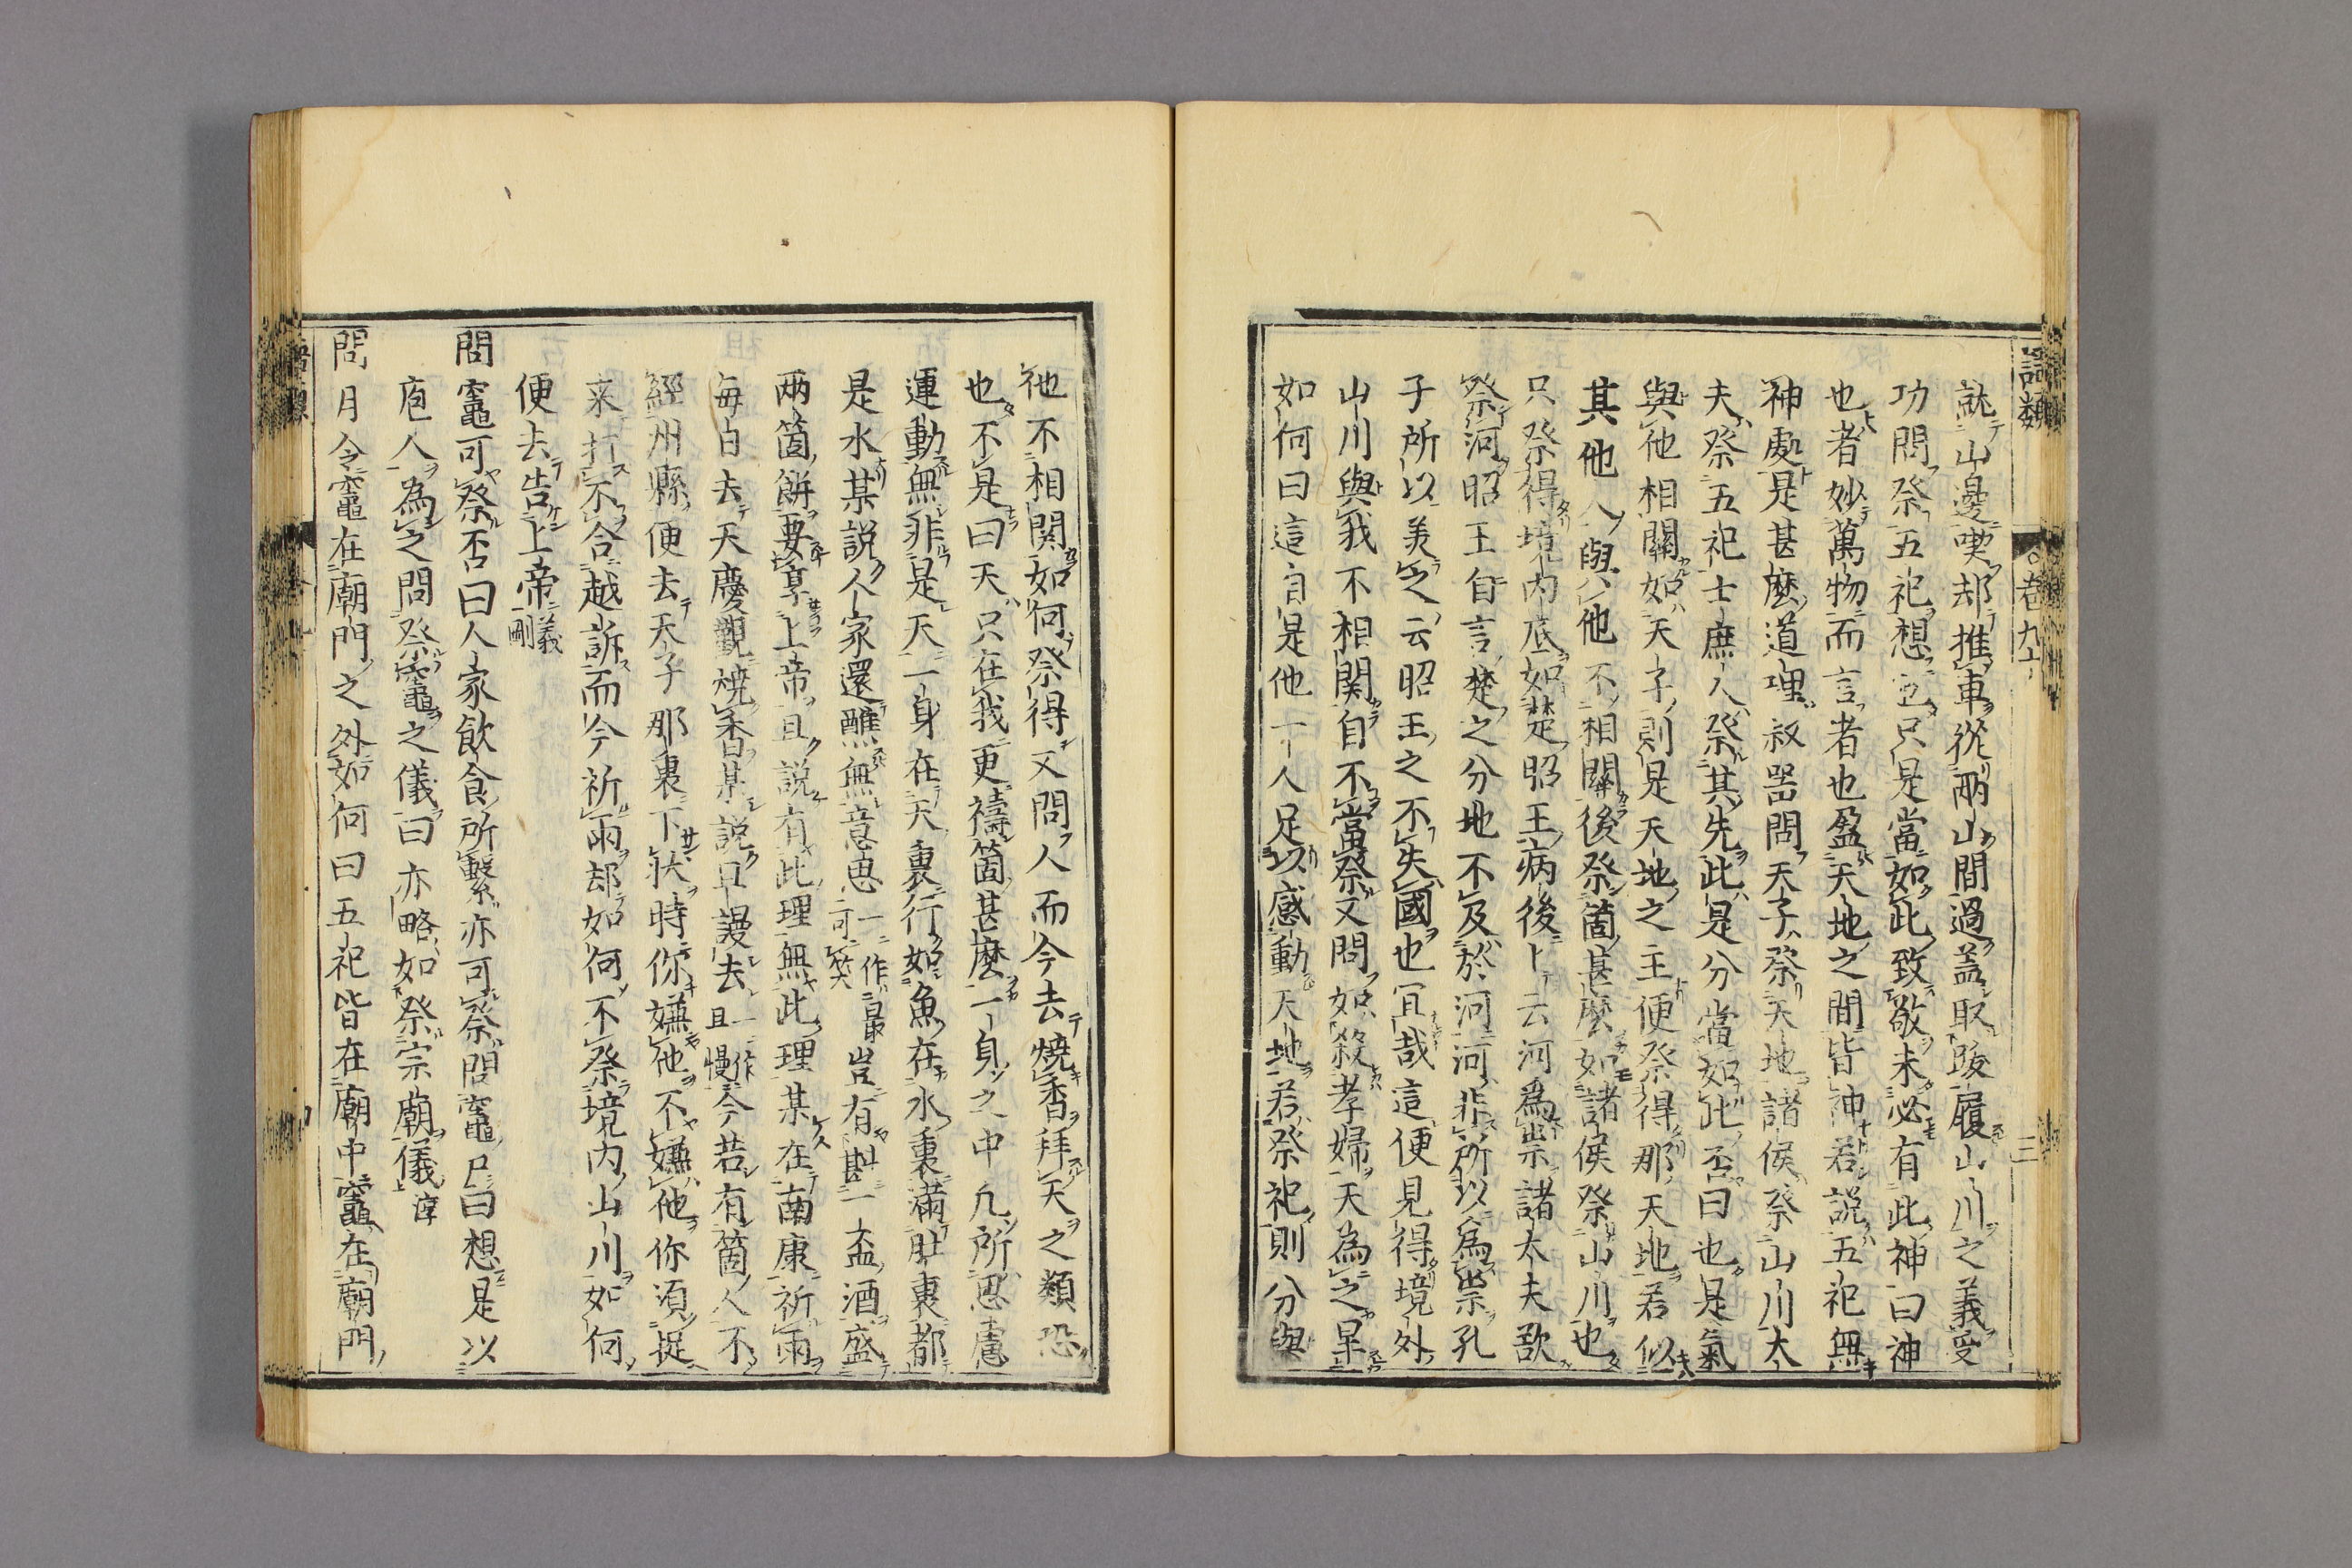 語類
卷九十
三
就山邊喫却推車從兩山間過蓋取跋履山川之義受
功問祭五祀想也只是當如此致敬未必有此神曰神
也者妙萬物而言者也盈天地之間皆神若說五祀無
神處是甚麼道理叔器問天子祭天地諸侯祭山川大
夫祭五祀士庶人祭其先此是分當如此否曰也是氣
與他相關如天子則是天地之主便祭得那天地若似
其他人與他不相關後祭箇甚麼如諸侯祭山川也
只祭得境內底如楚昭王病後卜云河爲祟諸大夫欲
祭河昭王自言楚之分地不及於河河非所以爲祟孔
子所以美之云昭王之不失國也宜哉這便見得境外
山川與我不相關自不當祭又問如殺孝婦天為之旱
如何曰這自是他一人足以感動天地若祭祀則分與
他不相關如何祭得又問人而今去燒香拜天之類恐
也不是曰天只在我更禱箇甚麼一身之中凡所思慮
運動無非是天一身在天裏行如魚在水裏滿肚裏都
是水某說人家還醮無意思一作最可笑豈有斟一盃酒盛
兩箇餅要享上帝且說有此理無此理某在南康祈雨
每日去天慶觀燒香某說且謾去一作且慢今若有箇人不
經州縣便去天子那裏下狀時你嫌他不嫌他你須捉
来打不合越訴而今祈雨却如何不祭境内山川如何
便去告上帝義剛
問竈可祭否曰人家飲食所繫亦可祭問竈尸曰想是以
庖人為之問祭竈之儀曰亦略如祭宗廟儀淳
問月令竈在廟門之外如何曰五祀皆在廟中竈在廟門